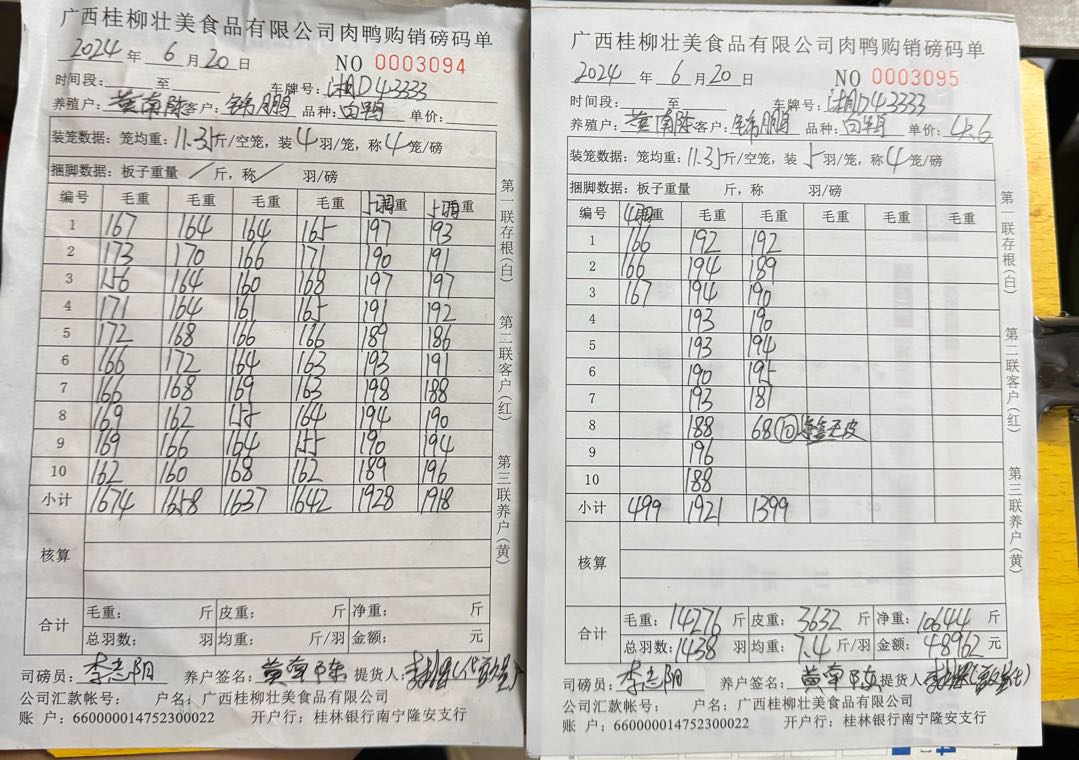 广西桂柳壮美食品有限公司肉鸭购销磅码单
2024 年 6 月 20 日 NO 0003094
时间段: 至 车牌号: 湘D43333
养殖户: 黄南陈 客户: 锦鹏 品种: 白鸭 单价:
装笼数据: 笼均重: 11.35 斤/空笼, 装 4 羽/笼, 称 4 笼/磅
捆脚数据: 板子重量 / 斤, 称 / 羽/磅
编号 毛重 毛重 毛重 毛重 5羽重 5羽重
1 167 164 164 165 197 193
2 173 170 166 171 190 191
3 156 164 160 168 197 197
4 171 164 161 165 191 192
5 172 168 166 166 189 186
6 166 172 164 163 193 191
7 166 168 169 163 198 188
8 169 162 155 164 194 190
9 169 166 164 155 190 194
10 162 160 168 162 189 196
小计 1674 1658 1637 1642 1928 1918
核算
合计 毛重: 斤 皮重: 斤 净重: 斤
总羽数: 羽 均重: 斤/羽 金额: 元
司磅员: 李志阳 养户签名: 提货人:
公司汇款帐号: 户名: 广西桂柳壮美食品有限公司
账 户: 660000014752300022 开户行: 桂林银行南宁隆安支行
第一联存根(白)
第二联客户(红)
第三联养户(黄)
广西桂柳壮美食品有限公司肉鸭购销磅码单
2024 年 6 月 20 日 NO 0003095
时间段: 至 车牌号: 湘D43333
养殖户: 黄南陈 客户: 锦鹏 品种: 白鸭 单价: 4.6
装笼数据: 笼均重: 11.35 斤/空笼, 装 5 羽/笼, 称 4 笼/磅
捆脚数据: 板子重量 斤, 称 羽/磅
编号 4羽重 毛重 毛重 毛重 毛重 毛重
1 166 192 192
2 166 194 189
3 167 194 190
4 193 190
5 193 194
6 190 195
7 193 181
8 188 68 10
9 196
10 188
小计 499 1921 1399
核算
合计 毛重: 14276 斤 皮重: 3632 斤 净重: 10644 斤
总羽数: 1438 羽 均重: 7.4 斤/羽 金额: 48962 元
司磅员: 李志阳 养户签名: 提货人:
公司汇款帐号: 户名: 广西桂柳壮美食品有限公司
账 户: 660000014752300022 开户行: 桂林银行南宁隆安支行
第一联存根(白)
第二联客户(红)
第三联养户(黄)